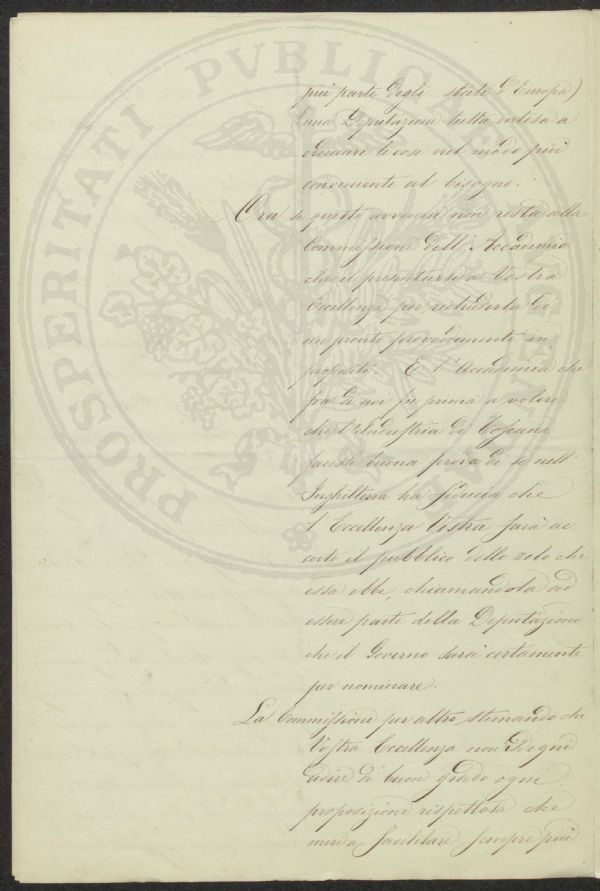 più parte degli stati d'Europa)
una Deputazione tutta intesa a
ordinare le cose nel modo più
conveniente al bisogno.
Ora se questo avvenga non resta alla
Commissione dell'Accademia
che il presentarsi a Vostra
Eccellenza per richiederla di
un pronto provvedimento in
proposito. E l'Accademia che
fra di noi fu prima a volere
che l'Industria di Toscana
facesse buona prova di se nell'
Inghilterra ha fiducia che
l'Eccellenza Vostra farà ac
corto il pubblico dello zelo che
essa ebbe, chiamandola ad
essere parte della Deputazione
che il Governo sarà certamente
per nominare.
La Commissione per altro, stimando che
Vostra Eccellenza non sdegni
udire di buon grado ogni
proposizione rispettosa che
miri a facilitare sempre più
PROSPERITATI PVBLICAE